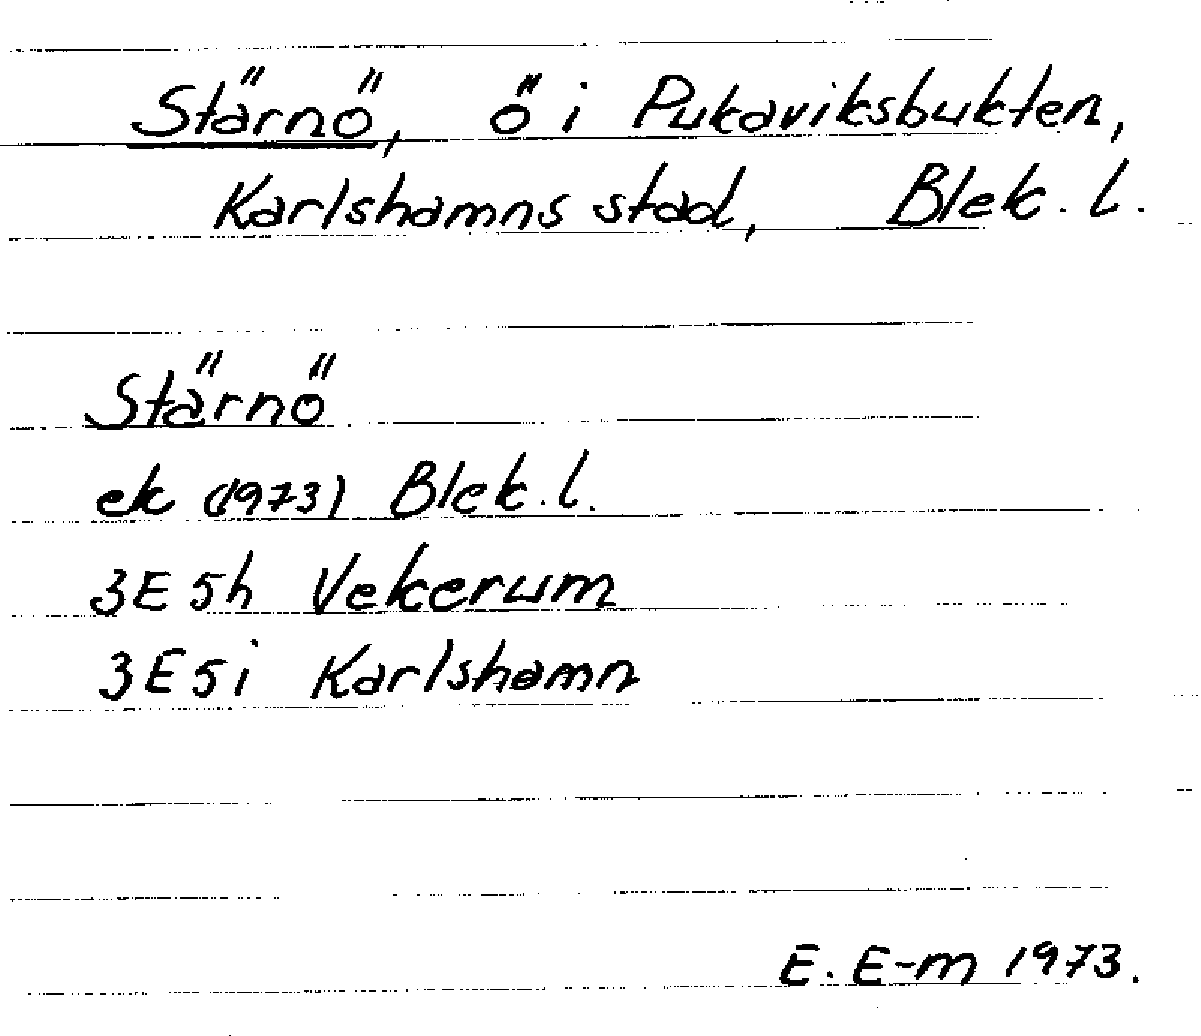 Stärnö, ö i Pukaviksbukten,
Karlshamns stad, Blek. l.
Stärnö
ek (1973) Blek. l.
3E 5h Vekerum
3E 5i Karlshamn
E. E-m 1973.